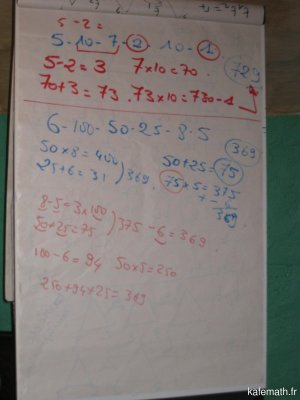 5-2=
5-10-7-2-10-1
729
5-2=3 7x10=70.
70+3=73.73x10=730-1
6-100-50-25-8-5
369
50x8=400
25+6=31 ) 369.
50+25=75
75x5=375
-6
369
8-5=3x100
50+25=75 ) 375-6=369
100-6=94 50x5=250
250+94+25=369
kafemath.fr